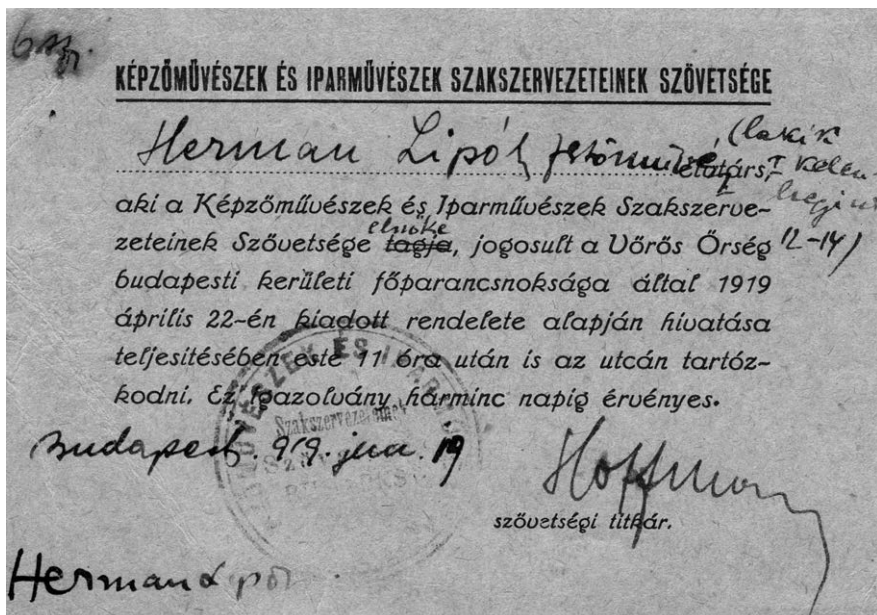 6 sz.
KÉPZŐMŰVÉSZEK ÉS IPARMŰVÉSZEK SZAKSZERVEZETEINEK SZÖVETSÉGE
Herman Lipót festőművész (lakik
elvtárs, I Kelen-
aki a Képzőművészek és Iparművészek Szakszerve- hegyi út
elnöke
zeteinek Szövetsége tagja, jogosult a Vörös Őrség 12-14)
budapesti kerületi főparancsnoksága által 1919
április 22-én kiadott rendelete alapján hivatása
teljesitésében este 11 óra után is az utcán tartóz-
kodni. Ez igazolvány harminc napig érvényes.
Szakszervezeteinek
Budapest. 919. jun. 19
Hoffman
szövetségi titkár.
Herman Lipót